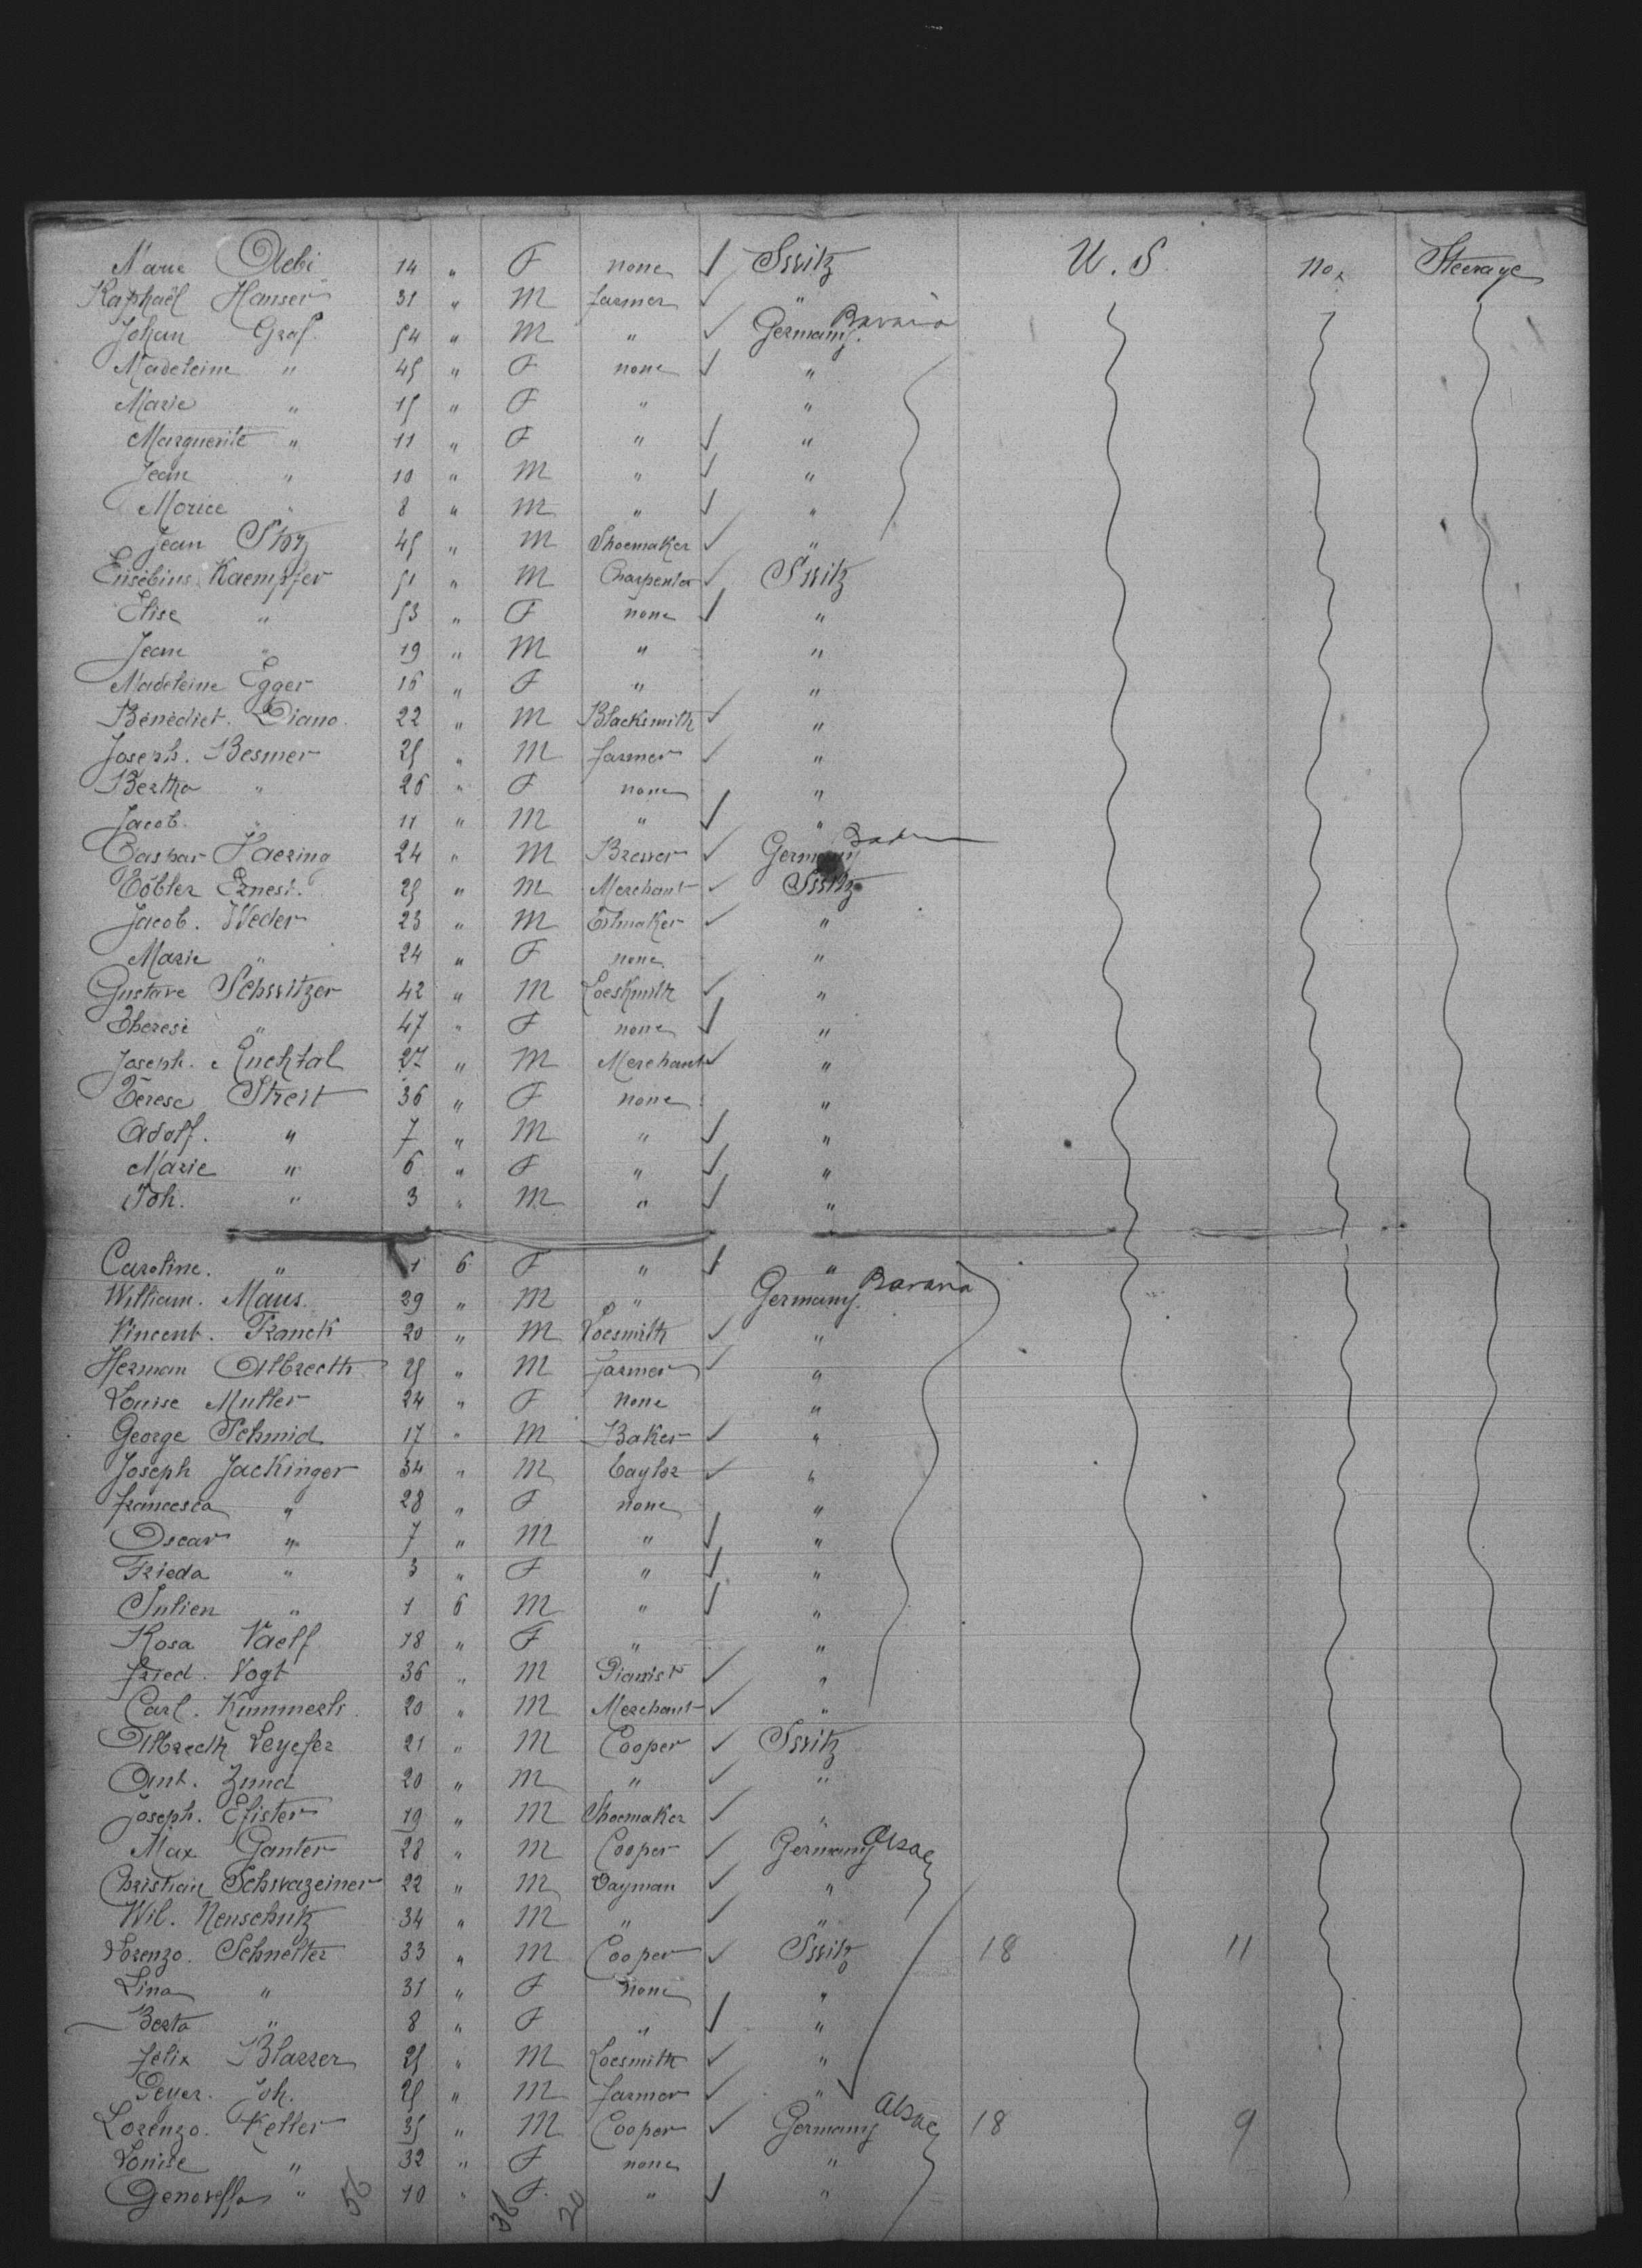 Marie Aebi 14 " F none ✓ Switz U. S. No. Steerage
Raphaël Hauser 31 " M farmer ✓ "
Johan Graf. 54 " M " ✓ Germany. Bavaria
Madeleine " 45 " F none ✓ "
Marie " 15 " F " "
Marguerite " 11 " F " ✓ "
Jean " 10 " M " ✓ "
Morice " 8 " M " ✓ "
Jean 45 " M Shoemaker ✓ "
Eusébius Kaempfer 51 " M Charpenter ✓ Switz
Elise " 53 " F none ✓ "
Jean " 19 " M " "
Madeleine Egger 16 " F " "
Bénédict. Diano. 22 " M Blacksmith ✓ "
Joseph. Besmer 25 " M farmer ✓ "
Bertha " 26 " F none "
Jacob. " 11 " M " ✓ "
Caspar Haering 24 " M Brewer ✓ Germany Baden
Tobler Ernest. 25 " M Merchant ✓ Switz
Jacob. Weder 23 " M ✓ "
Marie " 24 " F none "
Gustave Schwitzer 42 " M Locksmith ✓ "
Therese " 47 " F none ✓ "
Joseph. 27 " M Merchant ✓ "
Terese Streit 36 " F none "
Adolf. " 7 " M " ✓ "
Marie " 6 " F " ✓ "
Joh. " 3 " M " ✓ "
Caroline. " 1 6 F " ✓ "
William. Maus. 29 " M " Germany. Bavaria
Vincent. Franck 20 " M Locsmith ✓ "
Herman Albrecth 25 " M farmer ✓ "
Louise Muller 24 " F none "
George Schmid 17 " M Baker ✓ "
Joseph Jackinger 34 " M Taylor ✓ "
francesca " 28 " F none "
Oscar " 7 " M " ✓ "
Frieda " 3 " F " ✓ "
Julien " 1 6 M " ✓ "
Rosa Vaelf 18 " F " "
fried. Vogt 36 " M Pianist ✓ "
Carl. Kummerli. 20 " M Merchant ✓ "
Albrecth 21 " M Cooper ✓ Switz
Ant. Zund 20 " M " ✓ "
Joseph. Efister 19 " M Shoemaker ✓ "
Max Ganter 28 " M Cooper ✓ Germany Alsace
Christian Schwazeiner 22 " M Dayman ✓ "
Wil. Neuschutz 34 " M " ✓ "
Lorenzo. Schneller 33 " M Cooper ✓ Switz 18 11
Lina " 31 " F none "
Berta " 8 " F " ✓ "
felix Blazzer 25 " M Locsmith ✓ "
Peyer. Joh. 25 " M farmer ✓ "
Lorenzo. Keller 35 " M Cooper ✓ Germany Alsace 18 9
Louise " 32 " F none "
Genoseffa " 10 " F. " ✓ "
56 36 20